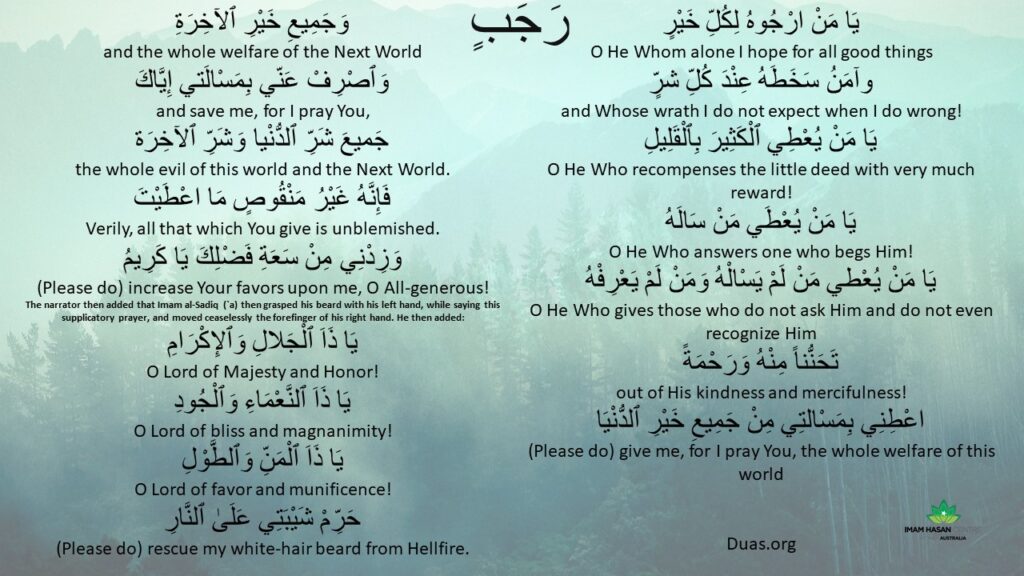 رَجَبٍ
يَا مَنْ ارْجُوهُ لِكُلِّ خَيْرٍ
O He Whom alone I hope for all good things
وآمَنُ سَخَطَهُ عِنْدَ كُلِّ شَرٍّ
and Whose wrath I do not expect when I do wrong!
يَا مَنْ يُعْطِي ٱلْكَثِيرَ بِٱلْقَلِيلِ
O He Who recompenses the little deed with very much
reward!
يَا مَنْ يُعْطَي مَنْ سَالَهُ
O He Who answers one who begs Him!
يَا مَنْ يُعْطي مَنْ لَمْ يَسْالْهُ وَمَنْ لَمْ يَعْرِفْهُ
O He Who gives those who do not ask Him and do not even
recognize Him
تَحَنُّناً مِنْهُ وَرَحْمَةً
out of His kindness and mercifulness!
اعْطِنِي بِمَسْالتِي مِنْ جَمِيعِ خَيْرِ ٱلدُّنْيَا
(Please do) give me, for I pray You, the whole welfare of this
world
وَجَمِيعِ خَيْرِ ٱلآخِرَةِ
and the whole welfare of the Next World
وَٱصْرِفْ عَنّي بِمَسْالَتي إِيَّاكَ
and save me, for I pray You,
جَميعَ شَرِّ ٱلدُّنْيا وَشَرِّ ٱلآخِرَة
the whole evil of this world and the Next World.
فَإِنَّهُ غَيْرُ مَنْقُوصٍ مَا اعْطَيْتَ
Verily, all that which You give is unblemished.
وَزِدْنِي مِنْ سَعَةِ فَضْلِكَ يَا كَرِيمُ
(Please do) increase Your favors upon me, O All-generous!
The narrator then added that Imam al-Sadiq (`a) then grasped his beard with his left hand, while saying this
supplicatory prayer, and moved ceaselessly the forefinger of his right hand. He then added:
يَا ذَاَ ٱلْجَلالِ وَٱلإِكْرَامِ
O Lord of Majesty and Honor!
يَا ذَاَ ٱلنَّعْمَاءِ وَٱلْجُودِ
O Lord of bliss and magnanimity!
يَا ذَاَ ٱلْمَنِّ وَٱلطَّوْلِ
O Lord of favor and munificence!
حَرِّمْ شَيْبَتِي عَلَىٰ ٱلنَّارِ
(Please do) rescue my white-hair beard from Hellfire.
Duas.org
IMAM HASAN CENTRE
AUSTRALIA